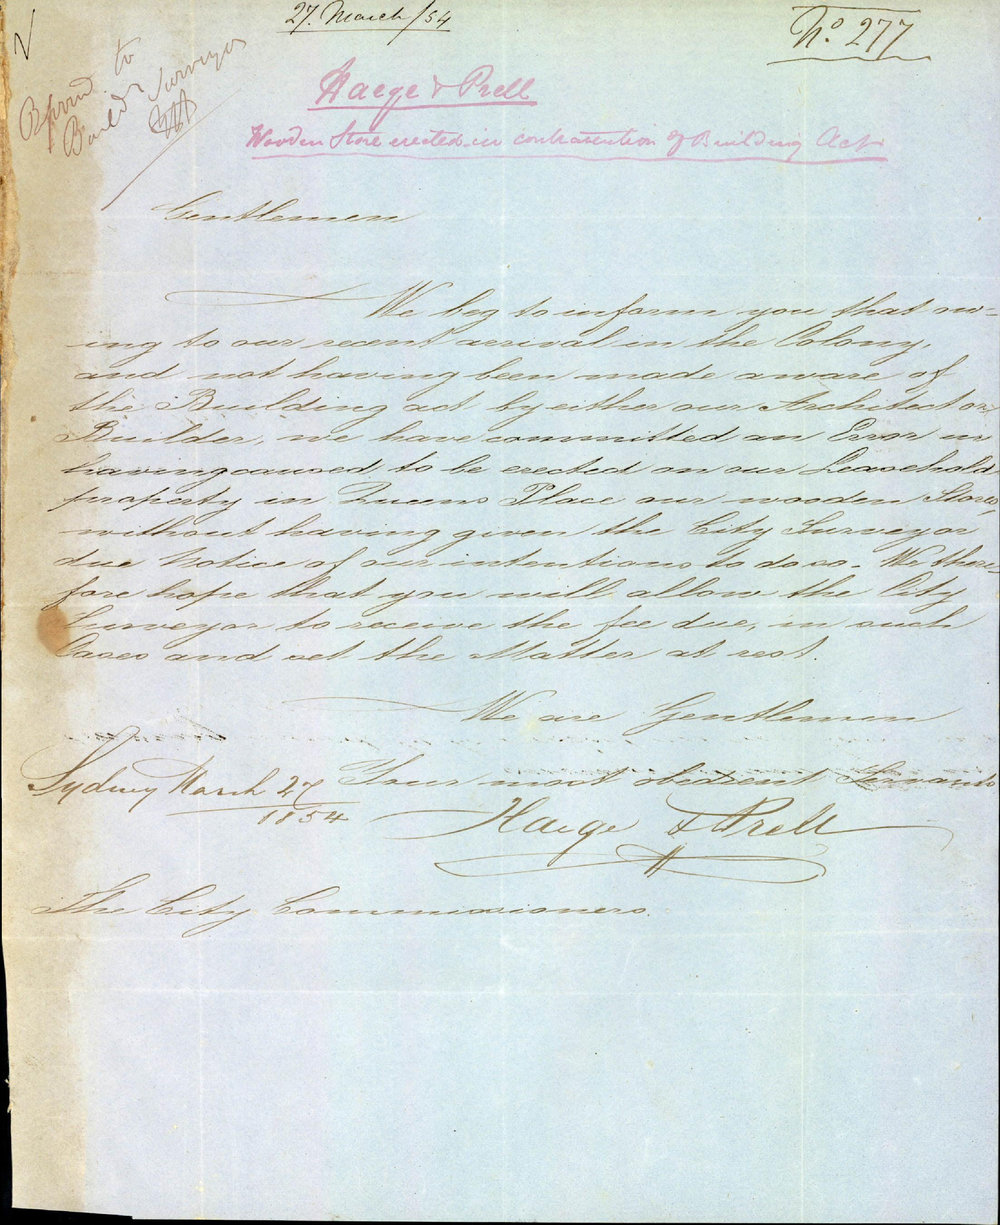 27. March/54
No. 277
to
Build Surveyor
Haege & Prell
Wooden Store erected in contravention of Building Act
Gentlemen
We beg to inform you that ow-
ing to our recent arrival in the Colony,
and not having been made aware of
the Building act by either our Architect or
Builder, we have committed an Error in
having caused to be erected on our Leasehold
property in Queens Place our wooden Store,
without having given the City Surveyor
due Notice of our intentions to do so. We there-
fore hope that you will allow the City
Surveyor to receive the fee due, in such
Cases and set the Matter at rest.
We are Gentlemen
Your most obedient Servants
Sydney March 27
1854
Haege & Prell
The City Commissioners.